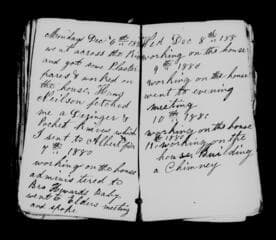 Monday Dec 6th 1880
went across the River
and got some Plaster
pared & worked on
the house. Hans
Neilson fetched
me a
Pocket Knives which
I sent to Albert for
7th 1880
working on the house
administered to
Bro Howards baby
went to Elders meeting
and spoke
Wed Dec 8th 188
working on the house
9th 1880
working on the house
went to evening
meeting
10th 1880
working on the house
11. working on the
house Building
a Chimney